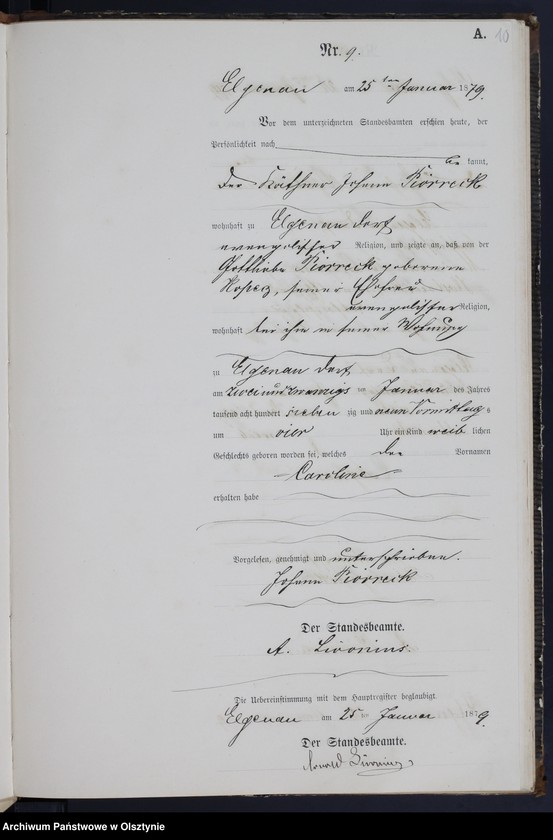 A. 10
Nr. 9.
Elgenau am 25 ten Januar 1879.
Vor dem unterzeichneten Standesbeamten erschien heute, der
Persönlichkeit nach
be kannt,
der Käthner Johann Piórreck
wohnhaft zu Elgenau Dorf
evangelischer Religion, und zeigte an, daß von der
Gottliebe Piorreck geborenen
seiner Ehefrau
evangelischer Religion,
wohnhaft bei ihm in seiner Wohnung
zu Elgenau Dorf
am zwei und zwanzigs ten Januar des Jahres
tausend acht hundert sieben zig und neun Vormittags
um vier Uhr ein Kind weib lichen
Geschlechts geboren worden sei, welches den Vornamen
Caroline
erhalten habe
Vorgelesen, genehmigt und unterschrieben.
Johann Piórreck
Der Standesbeamte.
A. Livonius.
Die Uebereinstimmung mit dem Hauptregister beglaubigt.
Elgenau am 25 ten Januar 1879.
Der Standesbeamte.
Arnold Livonius
Archiwum Państwowe w Olsztynie